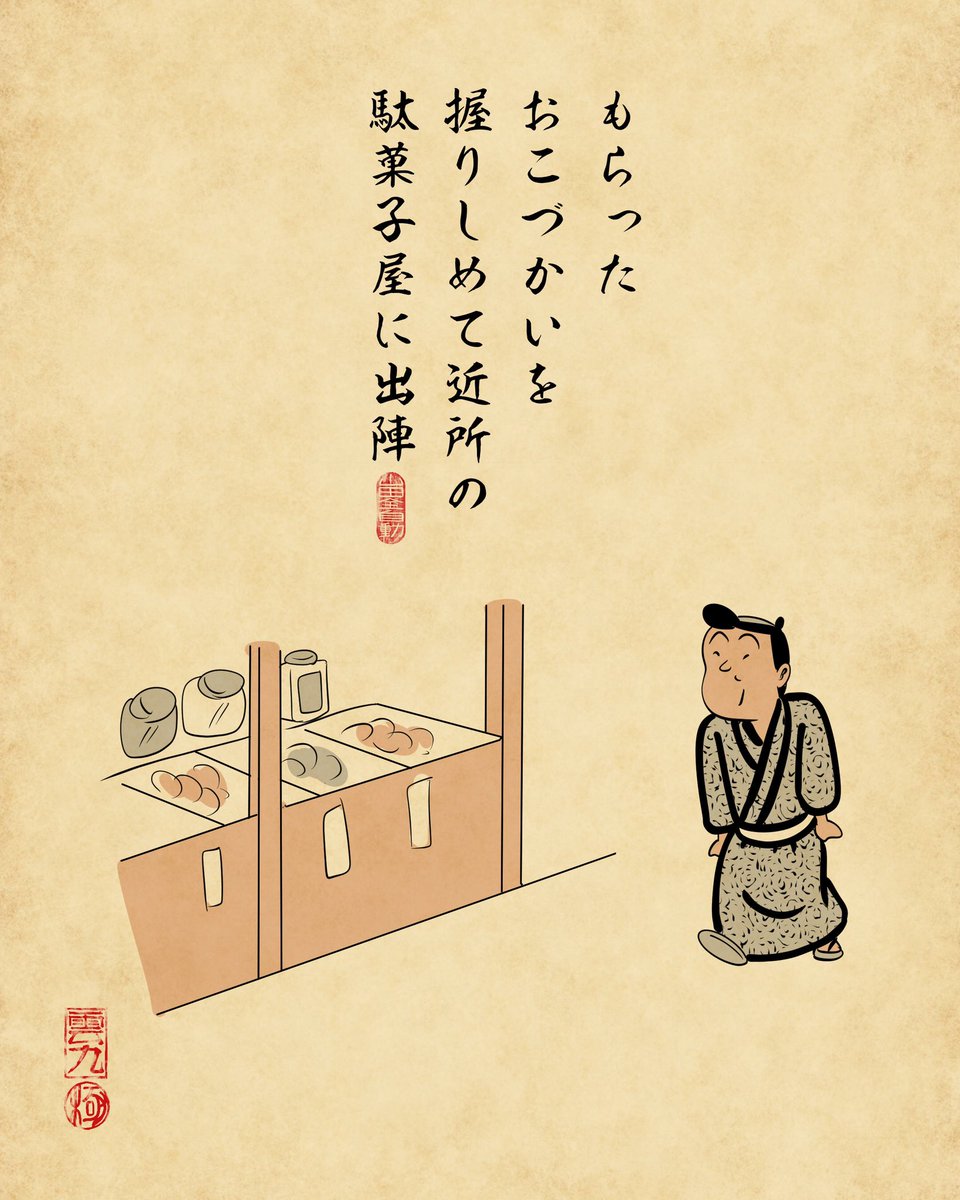 もらった
おこづかいを
握りしめて近所の
駄菓子屋に出陣